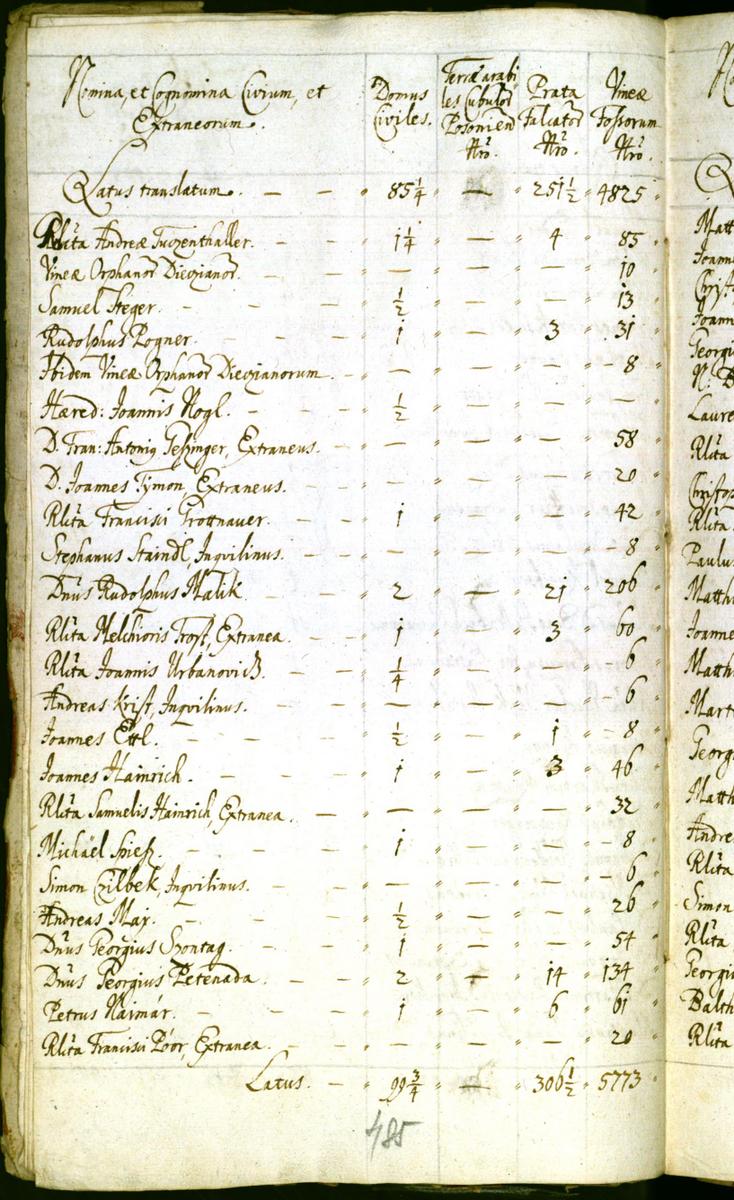 Nomina, et Cognomina Civium, et Extraneorum. Domus Civiles. Terræ arabiles Cubulor Posonien Nrö. Prata Falcator Nrö. Vineæ Fossorum Nrö.
Latus translatum. — — 85 1/4 — 251 1/2 4825
Rlita Andreæ Tuczenthaller. — 1 1/4 — 4 85
Vineæ Orphanor Dieczianor. — — — — 10
Samuel Steger. — — 1/2 — — 13
Rudolphus Pogner. — — 1 — 3 31
Ibidem Vineæ Orphanor Dieczianorum — — — — 8
Hæred: Joannis Nogl. — — 1/2 — — —
D. Fran: Antonig Geszinger, Extraneus. — — — — 58
D. Joannes Tymon, Extraneus. — — — — 20
Rlita Francisci Grottnauer. — 1 — — 42
Stephanus Staindl, Inqvilinus. — — — — 8
Dnus Rudolphus Malik. — 2 — 21 206
Rlita Melchioris Trost, Extranea. — 1 — 3 60
Rlita Joannis Urbanovicz. — 1/4 — — 6
Andreas Krist, Inqvilinus. — — — — 6
Joannes Ettl. — — 1/2 — 1 8
Joannes Hainrich. — — 1 — 3 46
Rlita Samuelis Hainrich, Extranea. — — — — 32
Michaël Spiesz. — — 1 — — 8
Simon Czilbek, Inqvilinus. — — — — 6
Andreas May. — — 1/2 — — 26
Dnus Georgius Szontag. — 1 — — 54
Dnus Georgius Petenada. — 2 — 14 134
Petrus Naimár. — — 1 — 6 61
Rlita Francisci Póór, Extranea. — — — — 20
Latus. — 99 3/4 — 306 1/2 5773
485